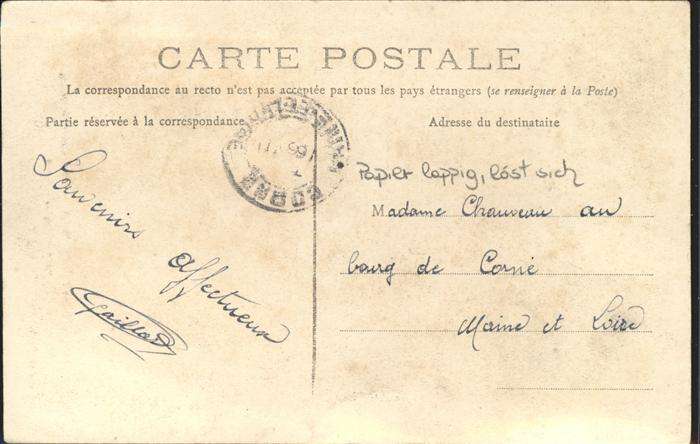 CARTE POSTALE
La correspondance au recto n'est pas acceptée par tous les pays étrangers (se renseigner à la Poste)
Partie réservée à la correspondance
Adresse du destinataire
CORNÉ
MAINE-ET-LOIRE
Souvenirs
affectueux
Gaillard
Papier lappig, löst sich
Madame Chauveau au
bourg de Corné
Maine et Loire